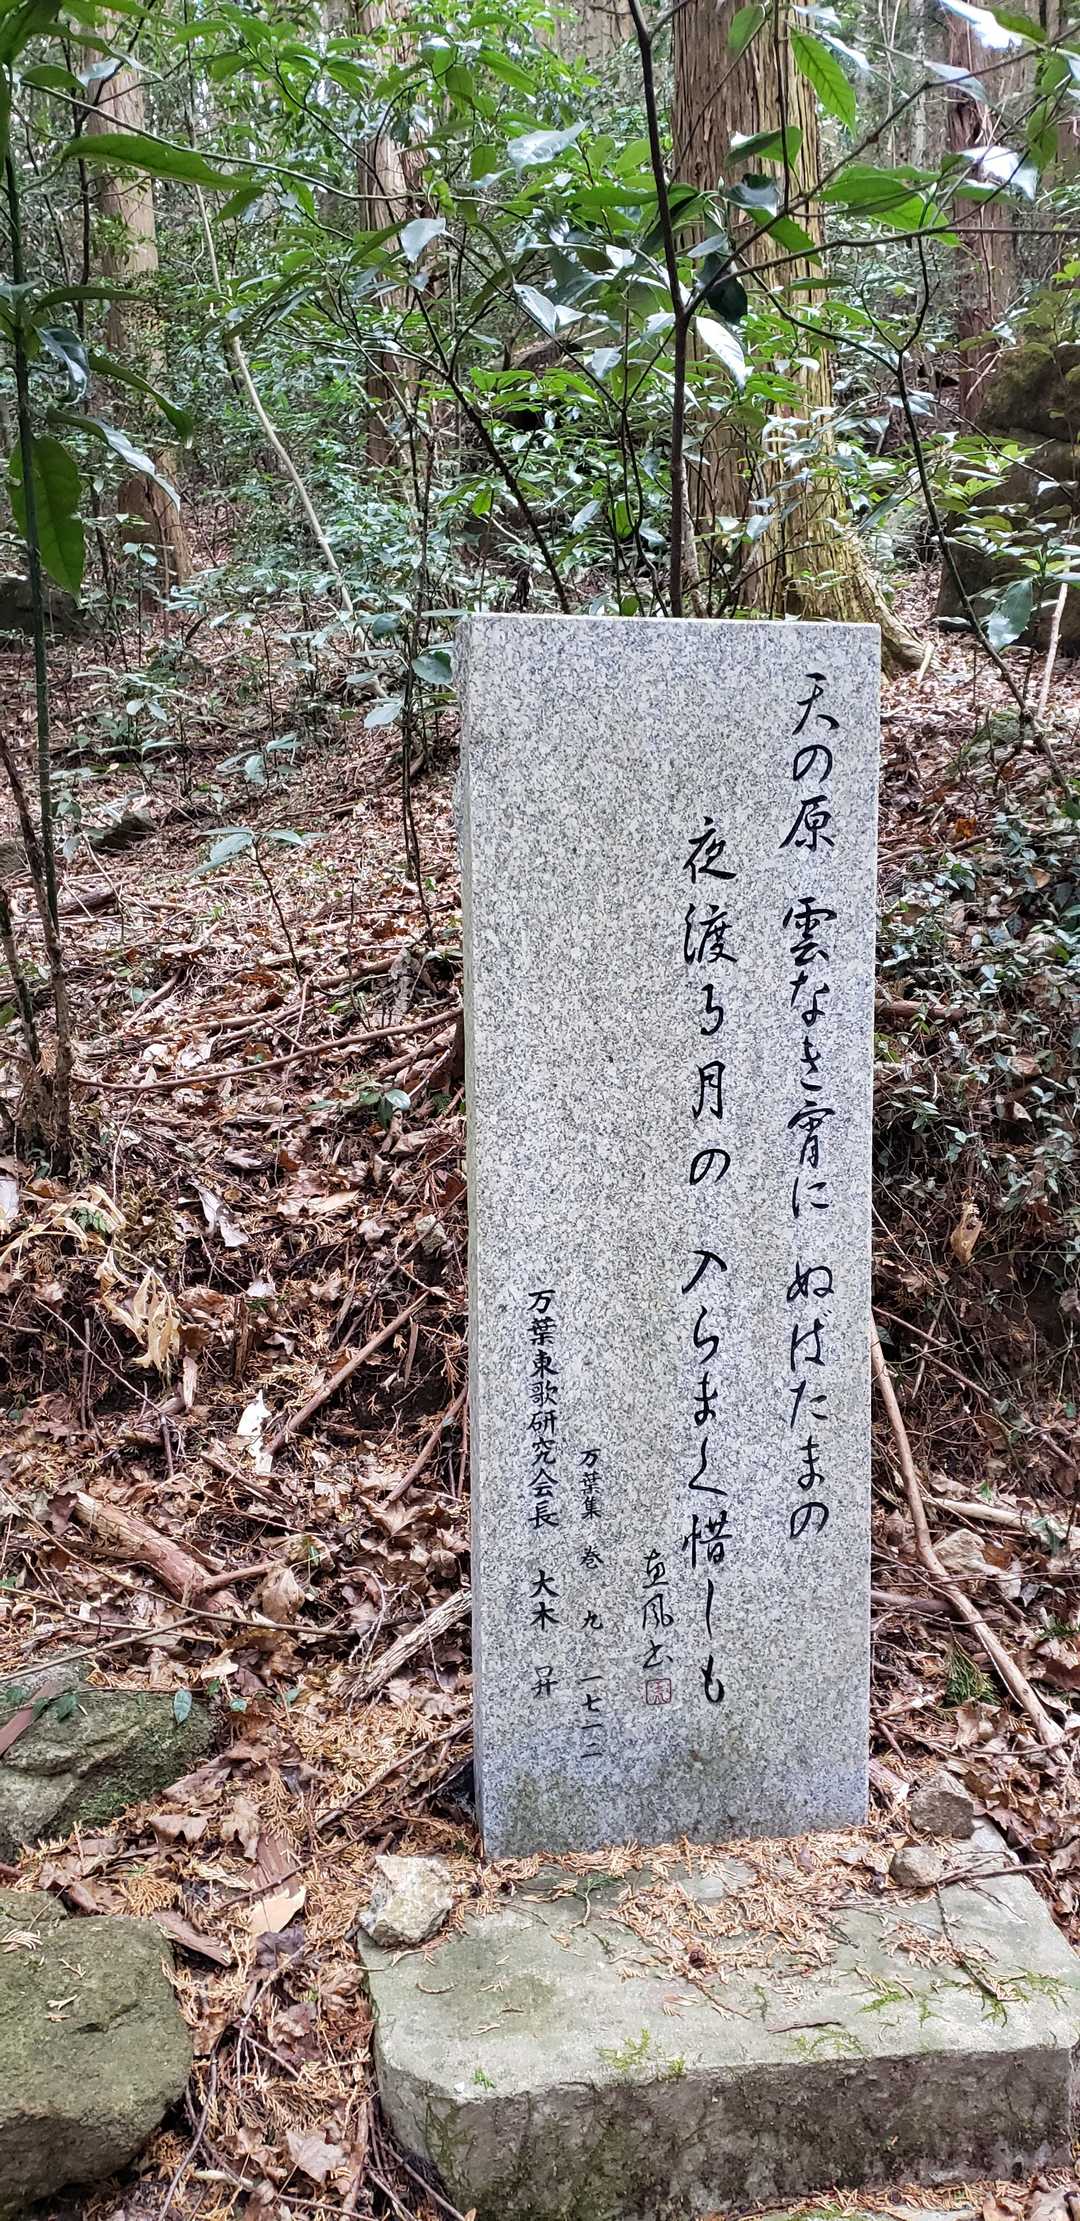 天の原 雲なき宵に ぬばたまの
夜渡る月の 入らまく惜しも
風書
万葉集 巻 九 一七一二
万葉東歌研究会長 大木 昇